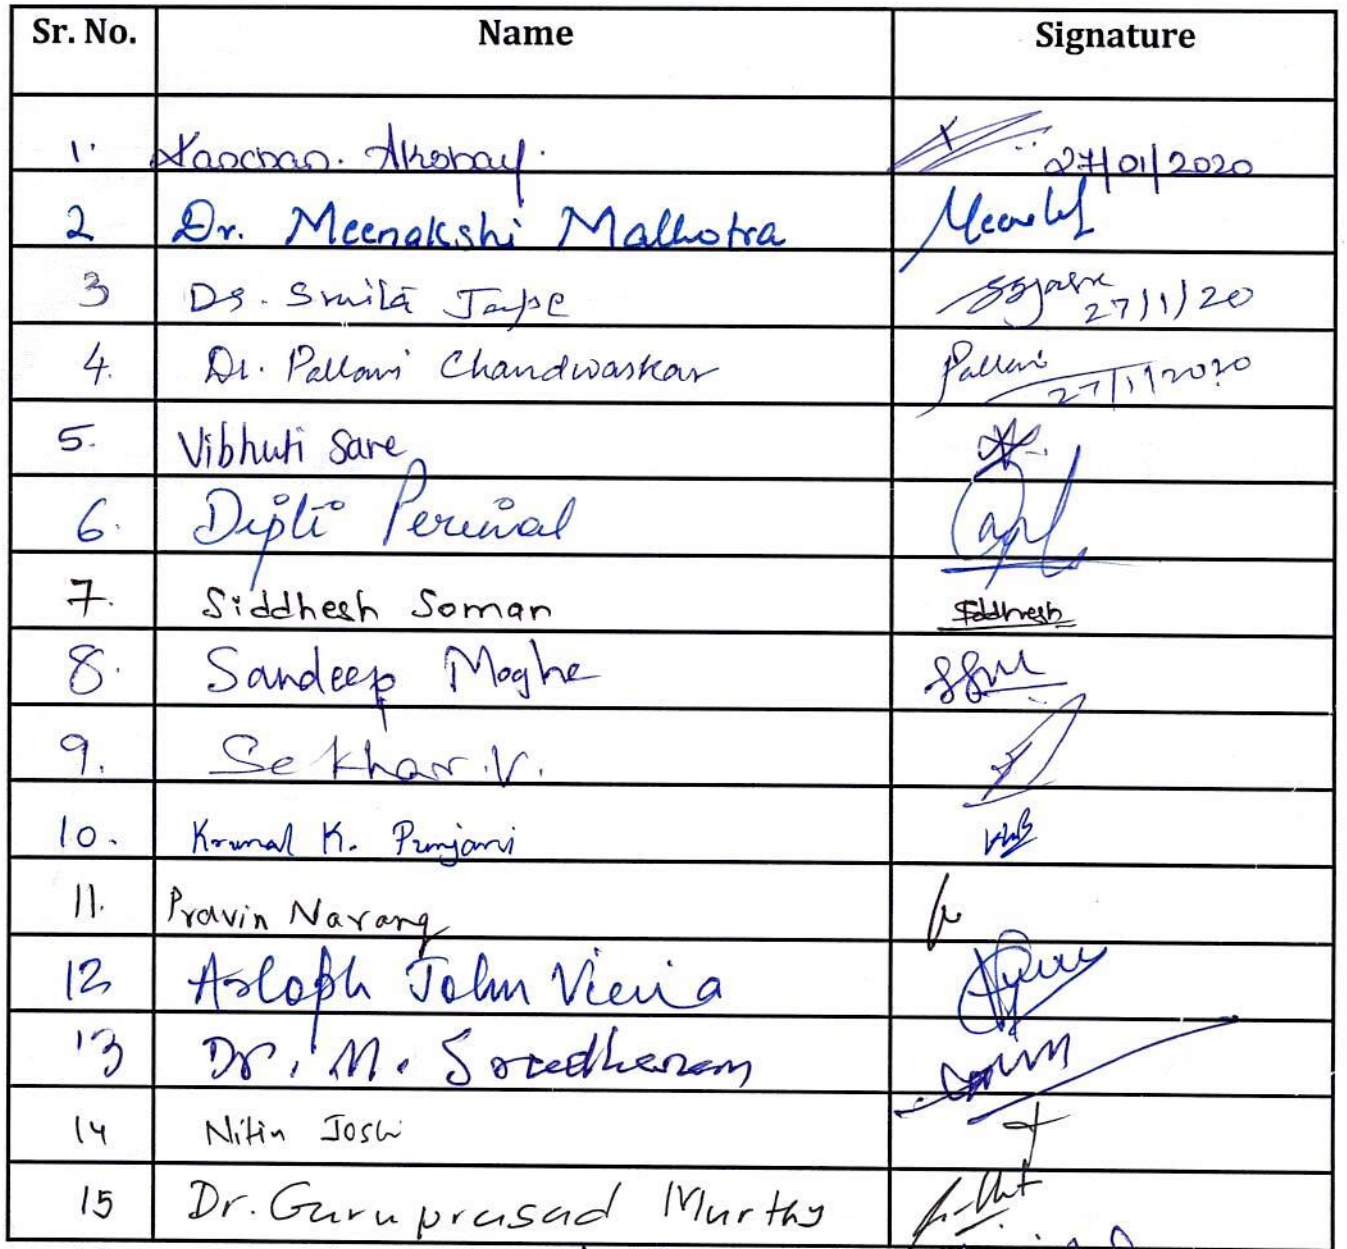 Sr. No. Name Signature
1. Kanchan. Akshay. 27/01/2020
2 Dr. Meenakshi Malhotra
3 Dr. Smita Jape 27/1/20
4. Dr. Pallavi Chandwaskar Pallavi 27/1/2020
5. Vibhuti Sare
6. Dipti Periwal
7. Siddhesh Soman Siddhesh
8. Sandeep Moghe
9. Sekhar.V.
10. Krunal K. Punjani
11. Pravin Narang
12 John
13 Dr. M. Sreedharan
14 Nitin Joshi
15 Dr. Guruprasad Murthy